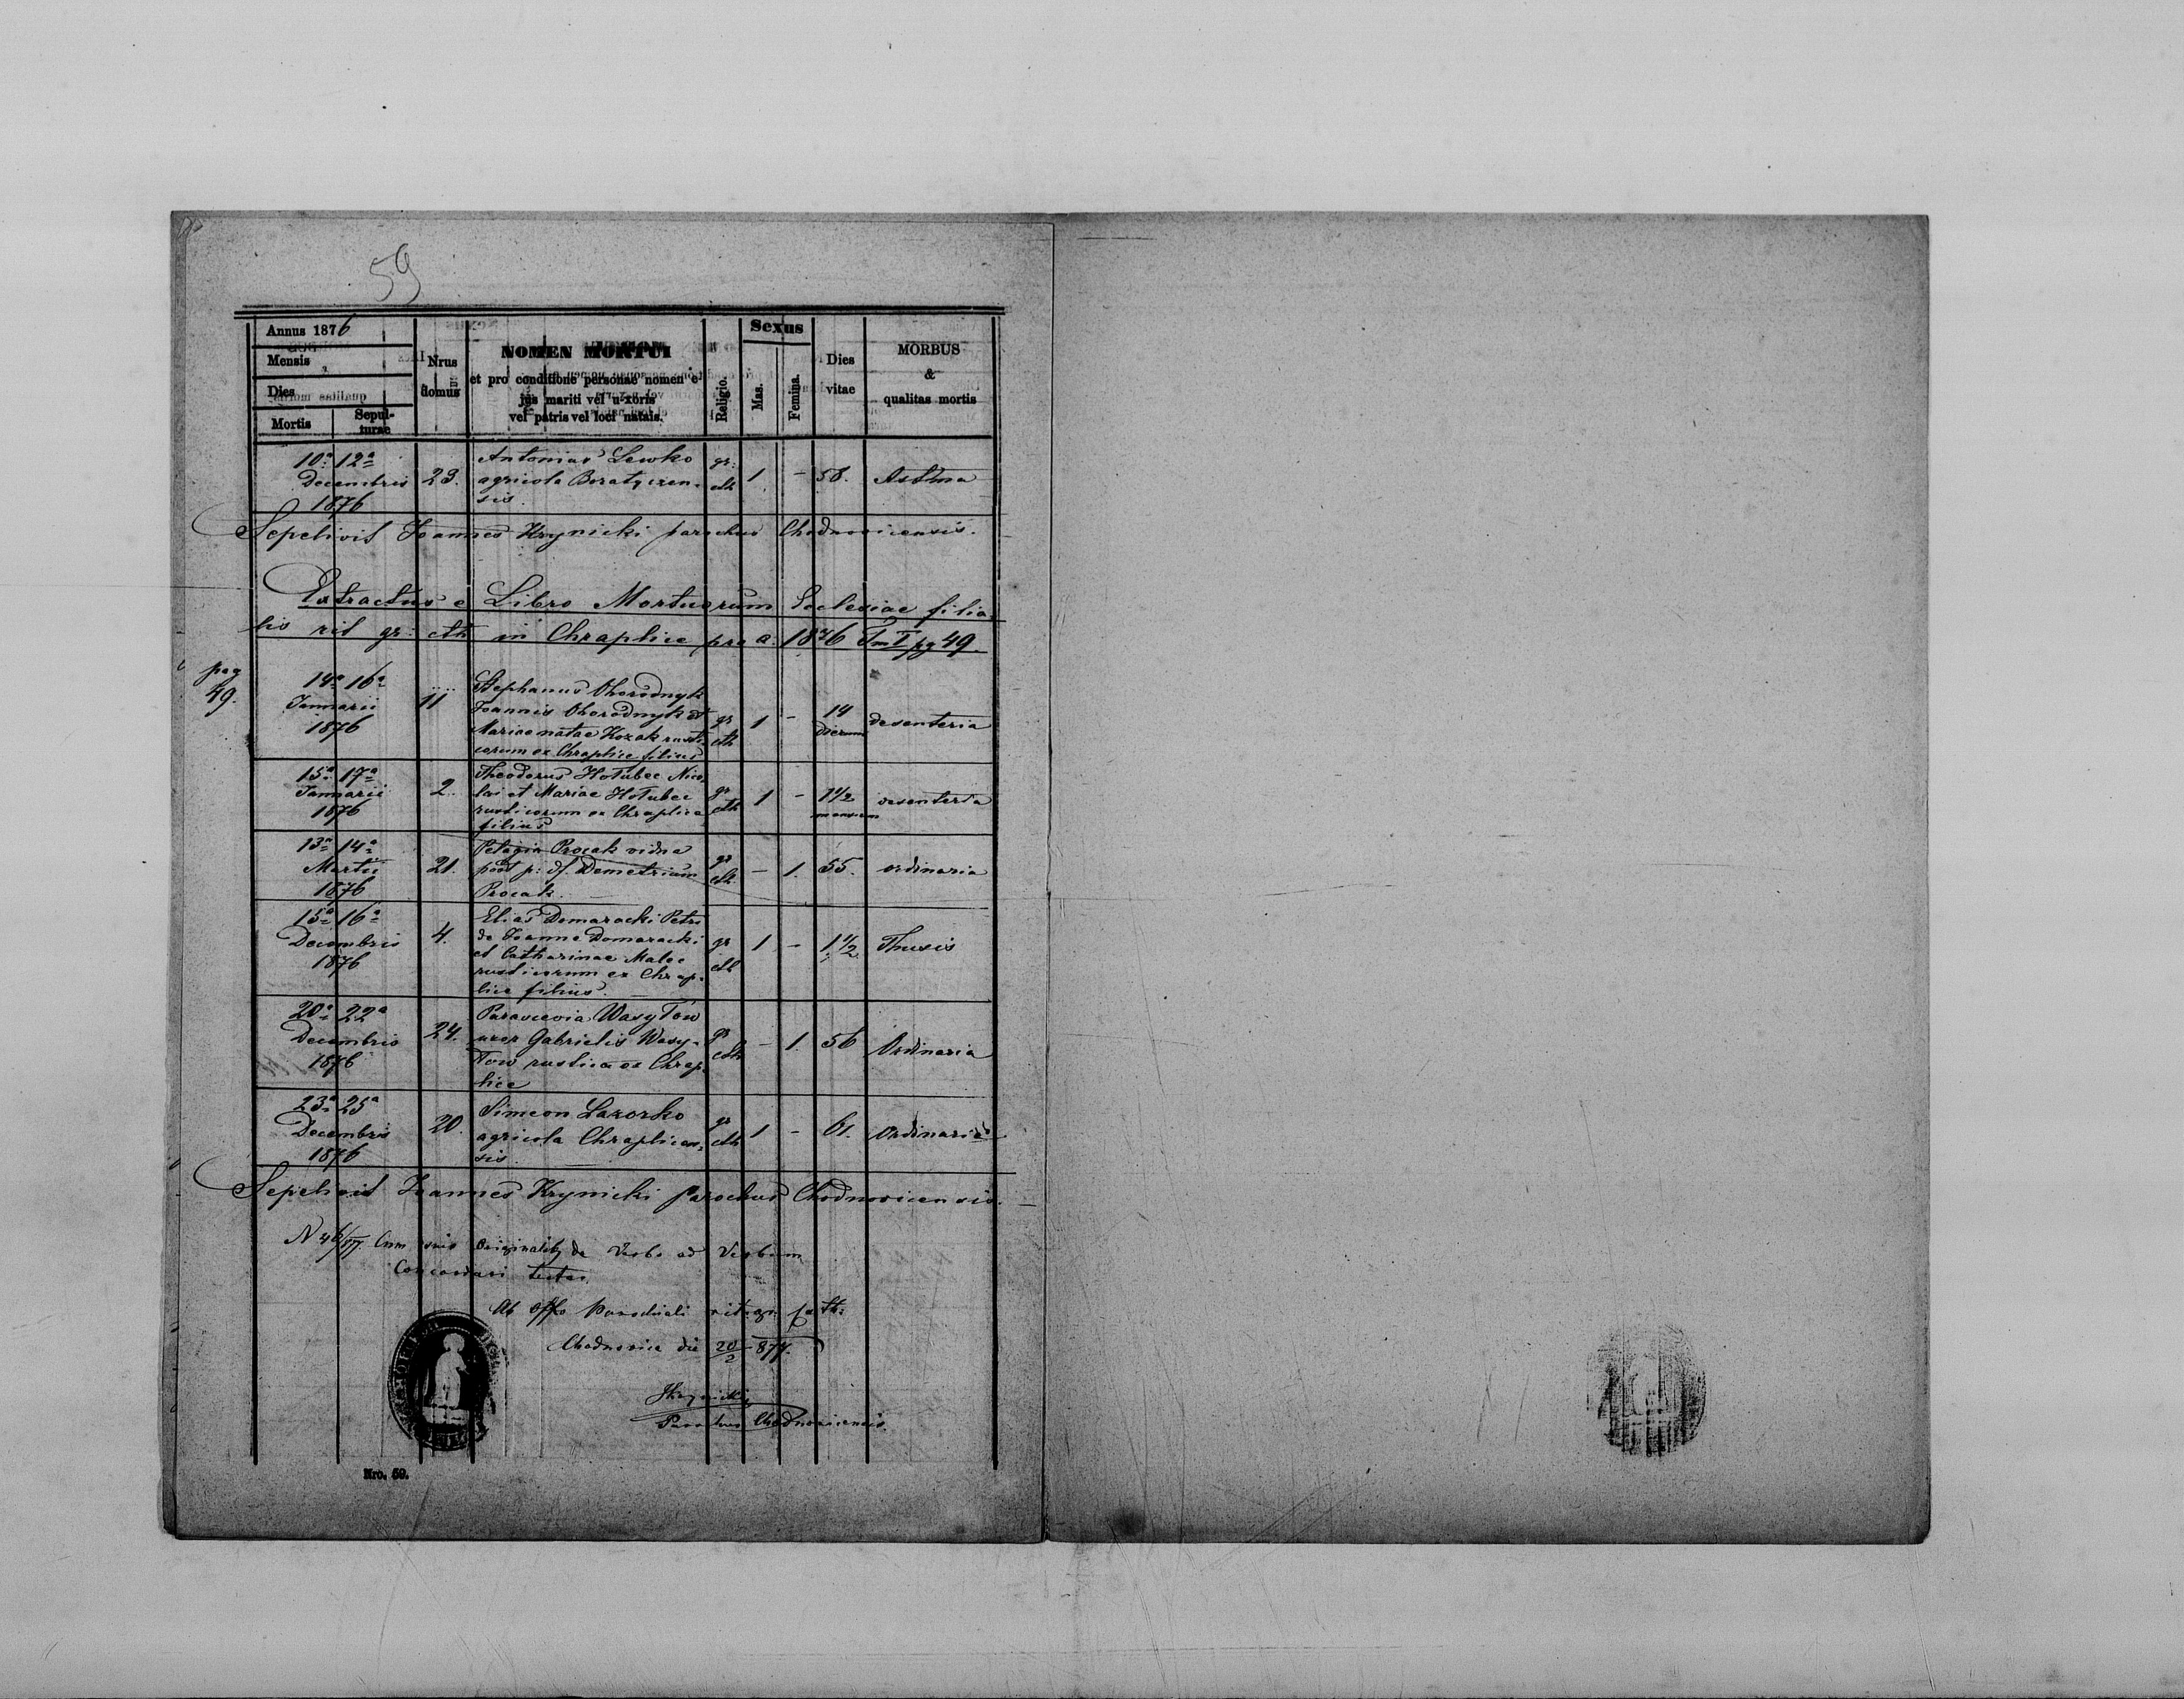 59
Annus 1876
Mensis
Dies
Mortis
Sepul-
turae
Nrus
domus
NOMEN MORTUI
et pro conditione personae nomen e-
jus mariti vel uxoris
vel patris vel loci natais.
Religio.
Sexus
Mas.
Femina.
Dies
vitae
MORBUS
&
qualitas mortis
10ª 12ª
Decembris
1876
23.
Antonius Lewko
agricola Boratyczen-
sis.
gr:
cth
1
-
58.
Asthma
Sepelivit Joannes Krynicki parochus Chodnovicensis.
Extractus e Libro Mortuorum Ecclesiae filia-
lis rit gr: cth in Chraplice pro a: 1876 Tm I pg 49
pag
49.
14ª 16ª
Januarii
1876
11
Stephanus Ohorodnyk
Joannis Ohorodnyk et
Mariae natae Kozak rusti-
corum ex Chraplice filius
gr
cth
1
-
14
dierum
desenteria
15ª 17ª
Januarii
1876
2.
Theodorus Hołubec Nico-
lai et Mariae Hołubec
rusticorum ex Chraplice
filius
gr
cth
1
-
1 1/2
mensium
desenteria
13ª 14ª
Martii
1876
21.
Pelagia Procak vidua
post p: df. Demetrium
Procak.
gr
cth
-
1.
55.
ordinaria
15ª 16ª
Decembris
1876
4.
Elias Domaracki Petri
de Joanne Domaracki
et Catharinae Malec
rusticorum ex Chrap-
lice filius.
gr
cth
1
-
1 1/2
Thusis
20ª 22ª
Decembris
1876
24.
Parascevia Wasyłow
uxor Gabrielis Wasy-
łow rustica ex Chrap-
lice
gr
cth
-
1.
56
Ordinaria
23ª 25ª
Decembris
1876
20.
Simeon Lazorko
agricola Chraplicen-
sis.
gr
cth
1
-
61.
Ordinaria
Sepelivit Joannes Krynicki parochus Chodnovicensis.
N 46/877. Cum suis Originalibg de Verbo ad Verbum
Concordari testor.
Ab Offo Parochiali rit. gr: cath:
Chodnovice die 20/2 877.
JKrynicki
Parochus Chodnovicensis.
Nro. 59.